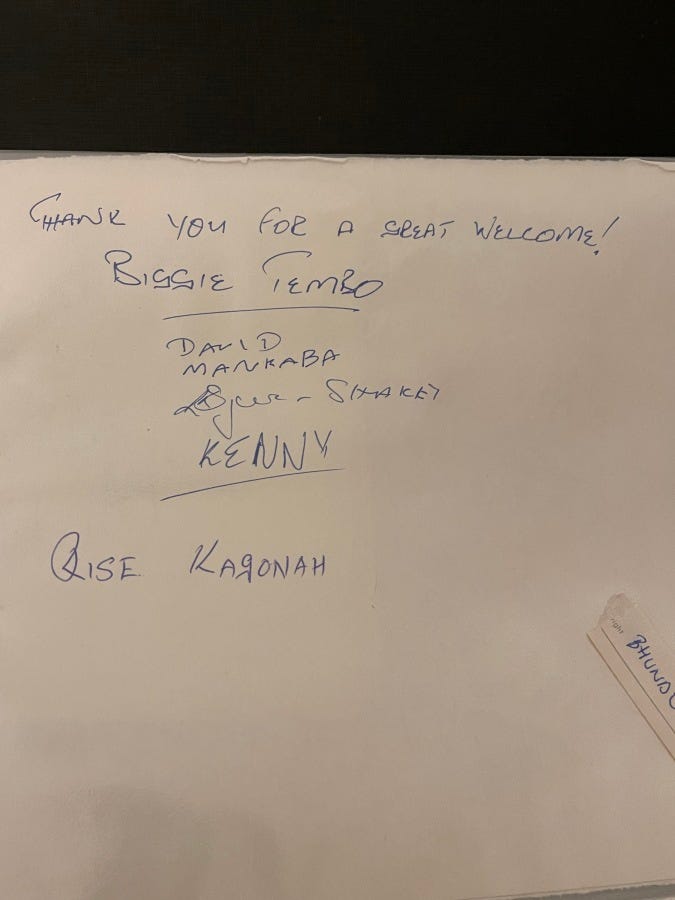 THANK YOU FOR A GREAT WELCOME!
BIGGIE TEMBO
DAVID
MANKABA
SHAKEY
KENNY
RISE KAGONAH
right
BHUND